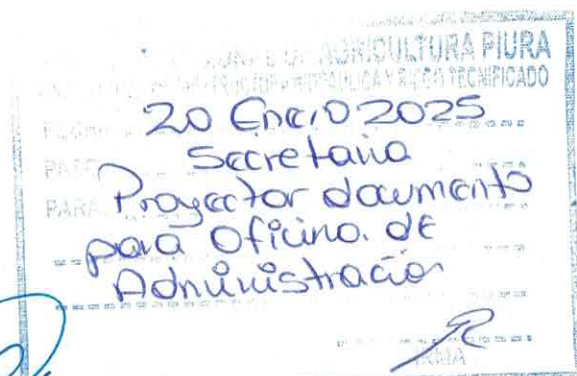 AGRICULTURA PIURA
HIDRAULICA Y RIEGO TECNIFICADO
20 Enero 2025
Secretaria
PARA
Proyectar documento
para Oficina. de
Administracion
FIRMA